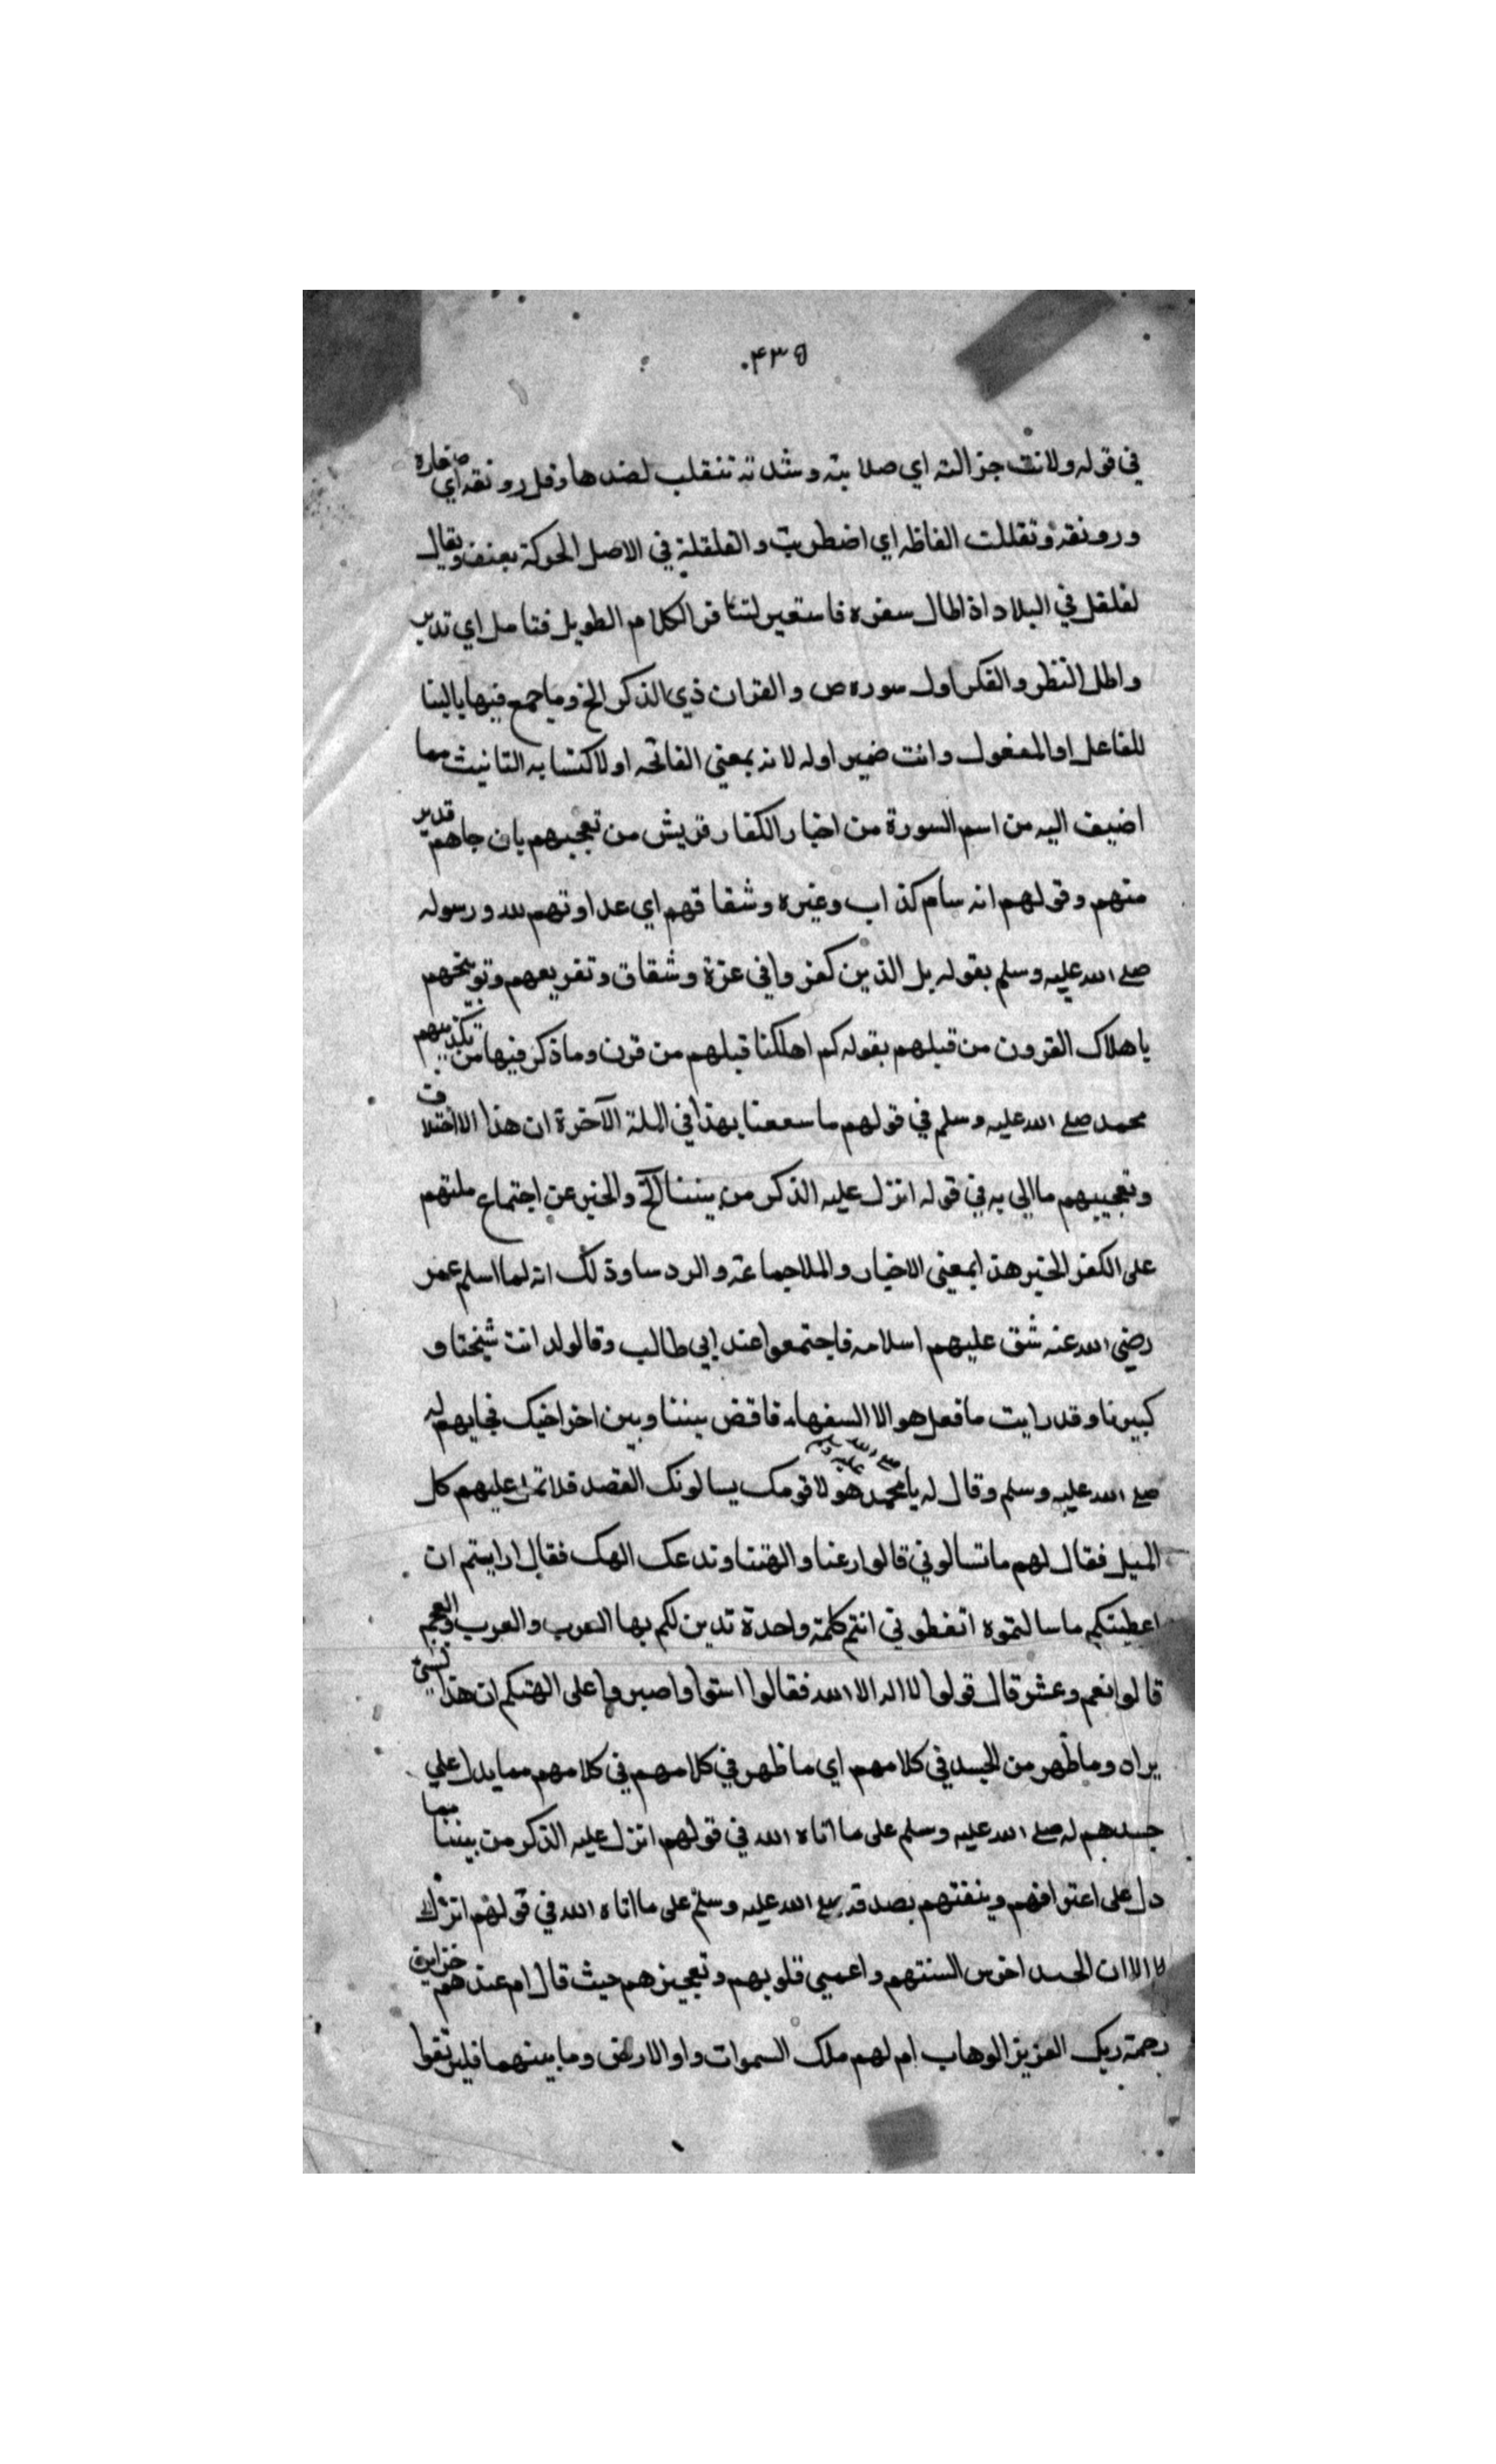 ٤٣٥
في قوله ولانت جزالته اي صلابته وشدته تنقلب لضدها وقل رونقه اي
ورونقه وتقللت الفاظه اي اضطربت والقلقلة في الاصل الحركة بعنف ويقال
لقلقل في البلاد اذا طال سفره فاستعير لتنافر الكلام الطويل فتامل اي تدبر
واطل النظر والفكر اول سوره ص والقران ذي الذكر الخ وما جمع فيها بالبنا
للفاعل او المفعول وانت ضمير اوله لانه بمعني الفاتحه او لاكتسابه التانيث مما
اضيف اليه من اسم السورة من اخبار الكفار قريش من تعجبهم بان جاهم
منهم وقولهم انه كذاب وغيره وشقاقهم اي عداوتهم لله ورسوله
صلي الله عليه وسلم بقوله بل الذين كفروا في عزة وشقاق وتقريعهم وتوبيخهم
باهلاك القرون من قبلهم بقوله كم اهلكنا قبلهم من قرن وما ذكر فيها من تكذيبهم
محمد صلي الله عليه وسلم في قولهم ما سمعنا بهذا في الملة الآخرة ان هذا الا اختلاق
وتعجيبهم مما اتي به في قوله انزل عليه الذكر من بيننا الخ والخبر عن اجتماع ملتهم
على الكفر الخبر هذا بمعني الاخبار والملا جماعة والردسا وذلك انه لما اسلم عمر
رضي الله عنه شق عليهم اسلامه فاجتمعوا عند ابي طالب وقالوله انت شيخنا و
كبيرنا وقد رايت ما فعل هولا السفهاء فاقض بيننا وبين اخراخيك فجابهم له
صلي الله عليه وسلم وقال له يا محمد صلى الله عليه وسلم هولا قومك يسالونك القصد فلا تمل عليهم كل
الميل فقال لهم ما تسالوني قالوا ارعنا والهتنا وندعك الهك فقال ارايتم ان
اعطيتكم ما سالتموه اتعطوني انتم كلمة واحدة تدين لكم بها العرب والعرب والعجم
قالوا نعم وعشر قال قولوا لا اله الا الله فقالوا استوا واصبروا على الهتكم ان هذا لشي
يراد وما ظهر من الحسد في كلامهم اي ما ظهر في كلامهم في كلامهم مما يدل علي
حسدهم له صلي الله عليه وسلم على ما اتاه الله في قولهم انزل عليه الذكر من بيننا مما
دل على اعترافهم بصدقه صلي الله عليه وسلم على ما اتاه الله في قولهم انزل
لا الا ان الحسد اخرس السنتهم واعمي قلوبهم وتعجيزهم حيث قال ام عندهم خزاين
رحمة ربك العزيز الوهاب ام لهم ملك السموات واو الارض وما بينهما فليرتقوا